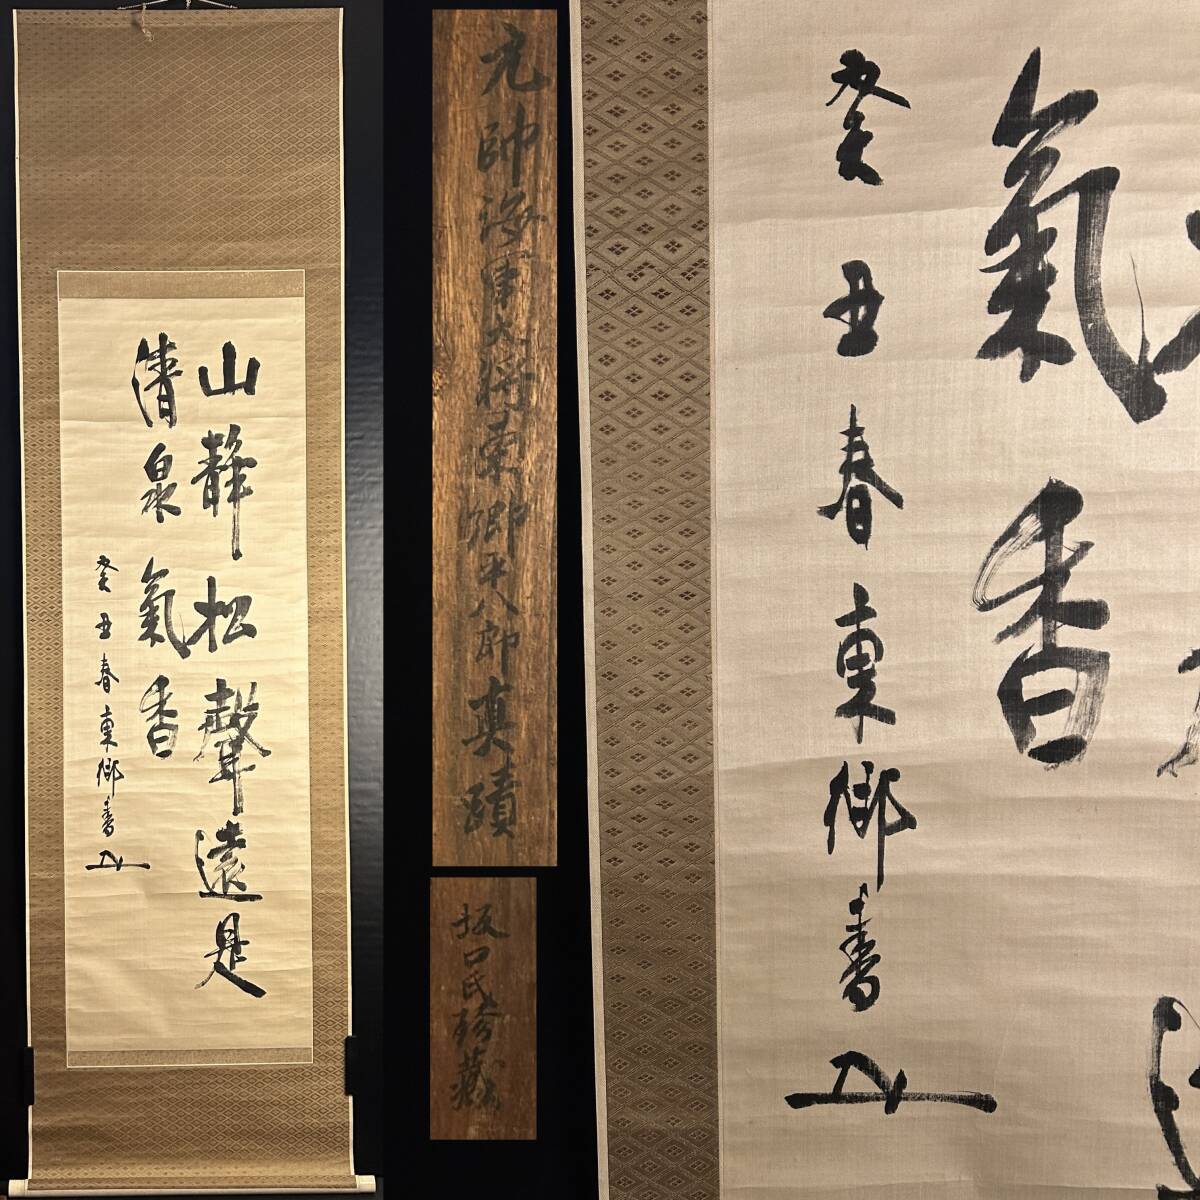 山静松聲遠是
清泉氣香
癸丑春東郷書
元帥海軍大将東郷平八郎真蹟
坂口氏珍藏
氣香
癸丑春東郷書